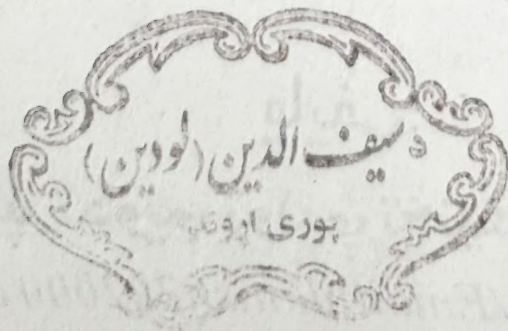 د سيف الدين (لودين)
پوری اروند